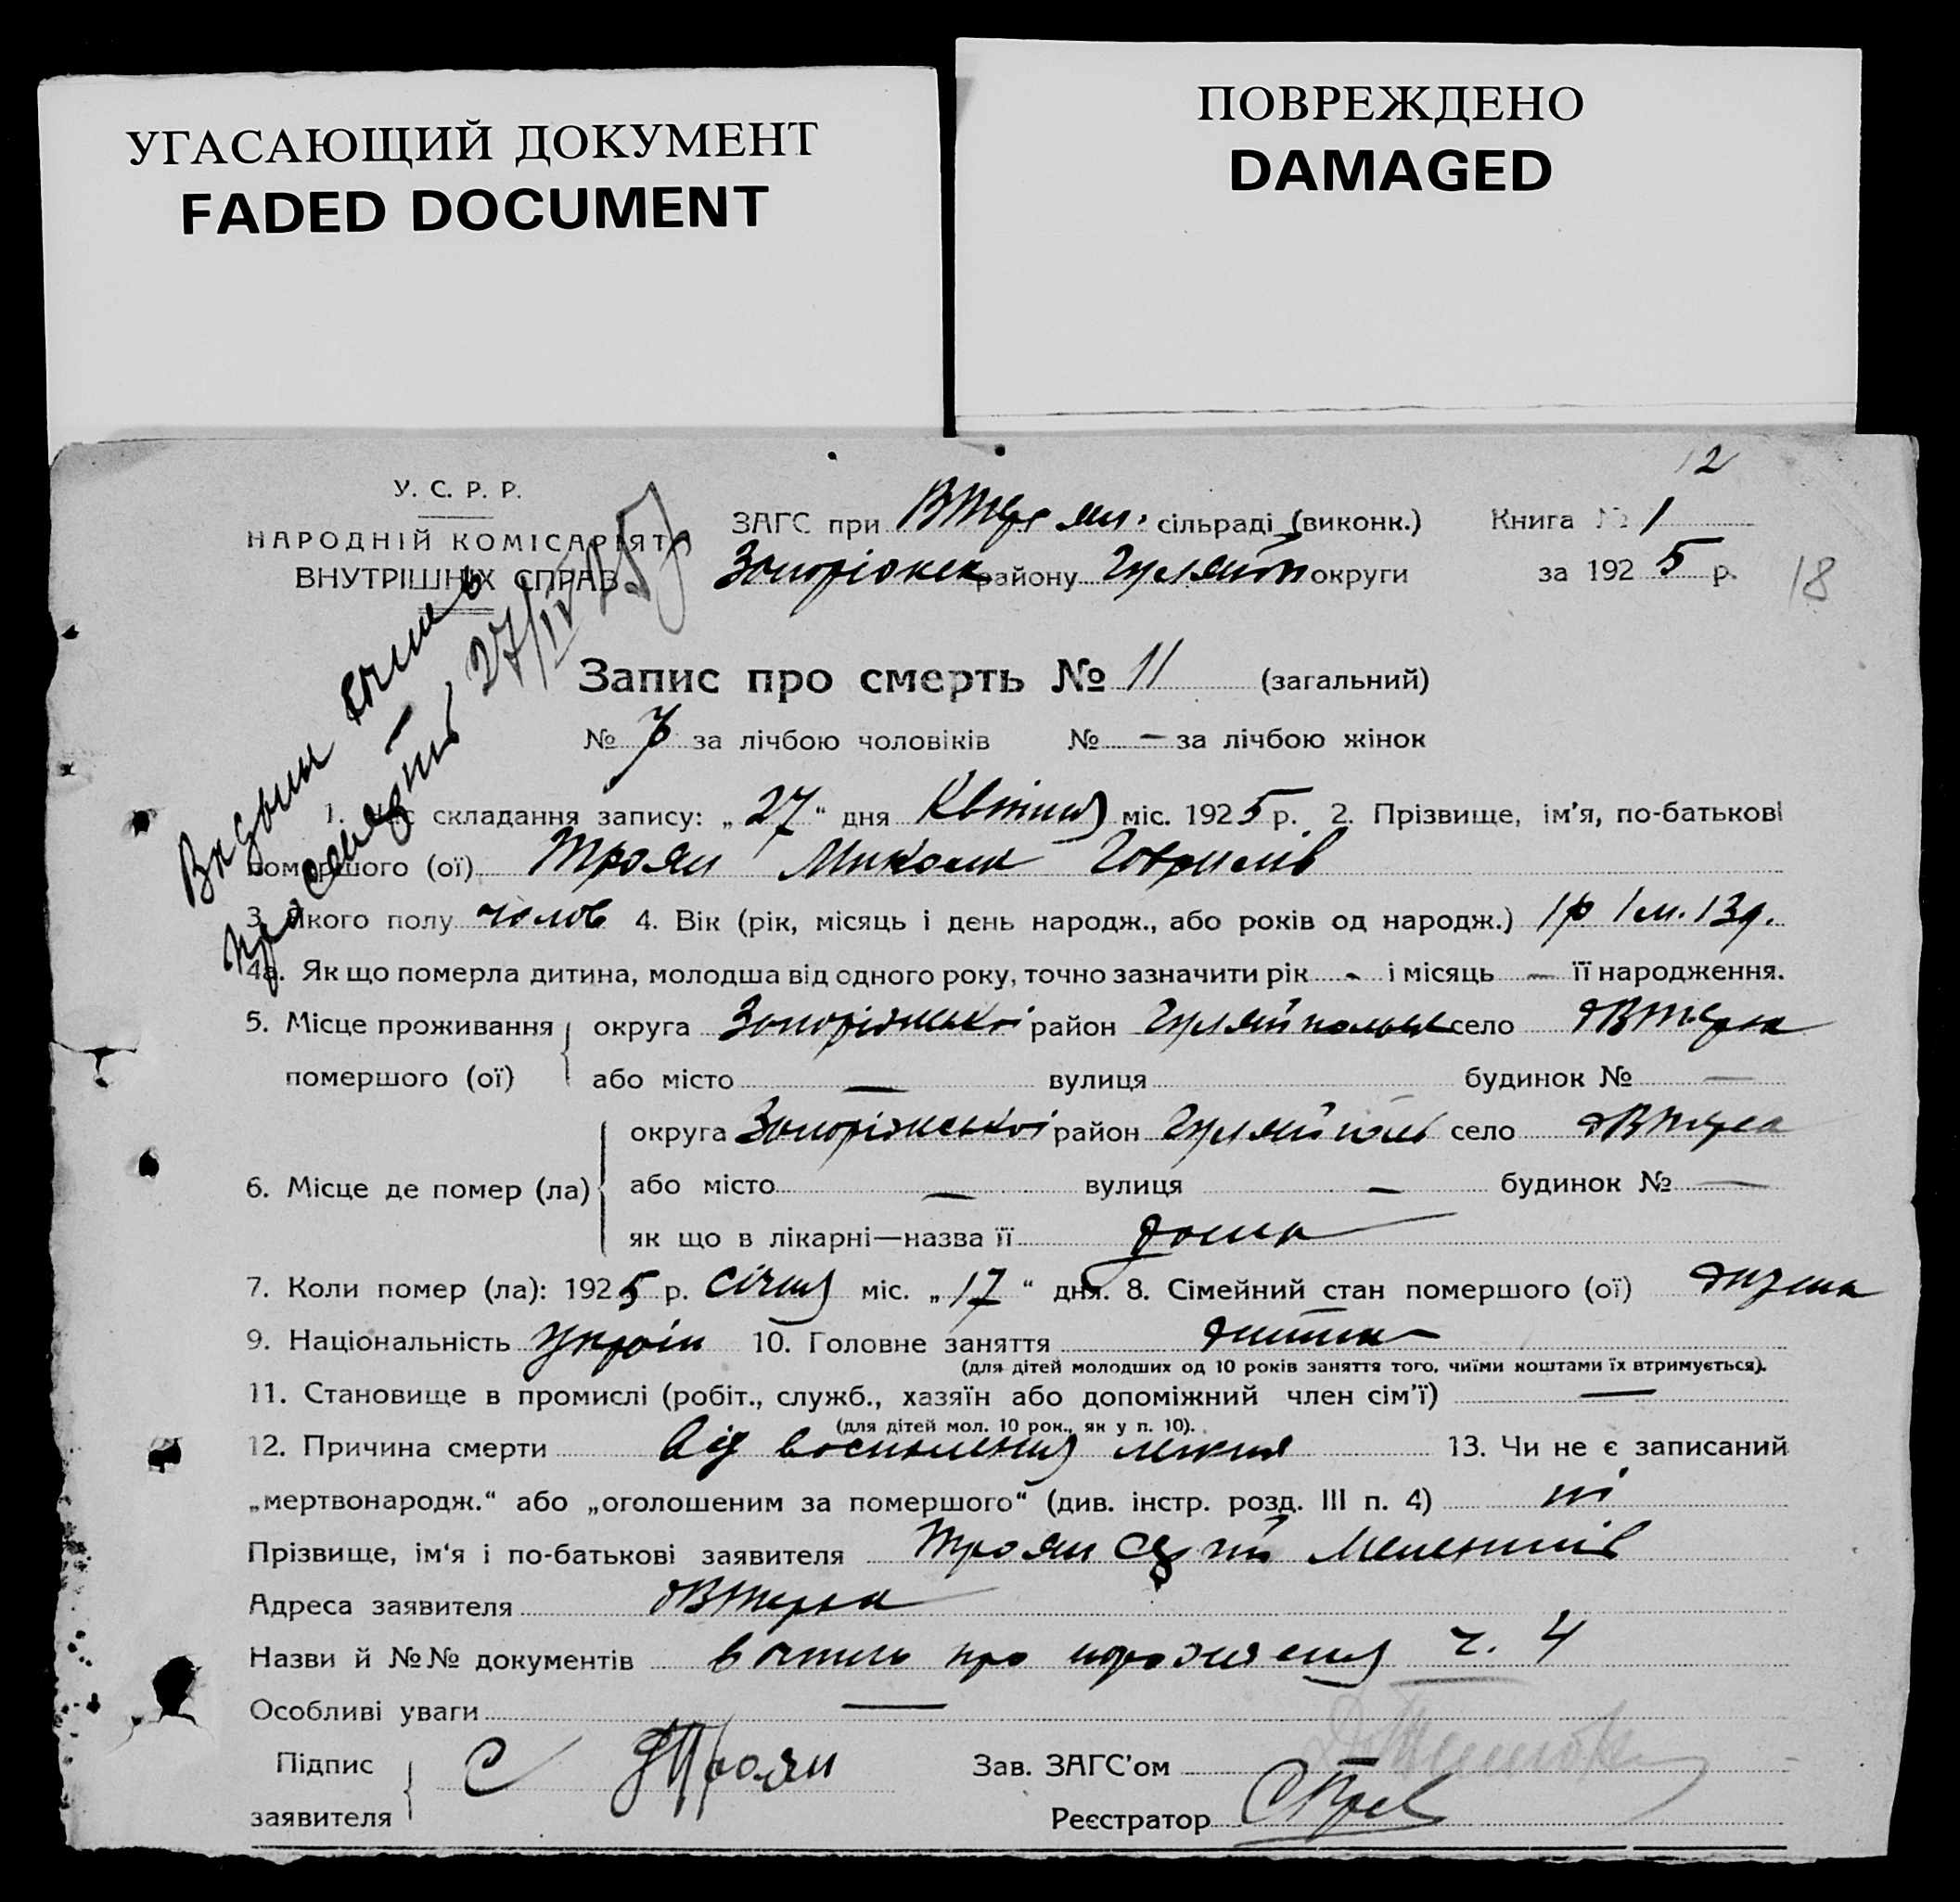 УГАСАЮЩИЙ ДОКУМЕНТ
FADED DOCUMENT
ПОВРЕЖДЕНО
DAMAGED
12
У. С. Р. Р.
НАРОДНІЙ КОМІСАРІЯТ
ВНУТРІШНІХ СПРАВ
ЗАГС при сільраді (виконк.)
Книга № 1
району Гуляйп округи
за 1925 р.
18
27/IV 25
Запис про смерть № 11 (загальний)
№ 7 за лічбою чоловіків № — за лічбою жінок
1. складання запису: „27“ дня Квітня міс. 1925 р. 2. Прізвище, ім'я, по-батькові
помершого (ої) Троян Микола Гаврилів
3. Якого полу чолов 4. Вік (рік, місяць і день народж., або років од народж.) 1р 1м. 13д.
4а. Як що померла дитина, молодша від одного року, точно зазначити рік - і місяць — її народження.
5. Місце проживання помершого (ої) округа Запоріжської район Гуляйпольск село
або місто — вулиця будинок № —
6. Місце де помер (ла) округа Запоріжської район Гуляйполь село
або місто — вулиця — будинок № —
як що в лікарні—назва її дома
7. Коли помер (ла): 1925 р. січня міс. „17“ дня. 8. Сімейний стан помершого (ої)
9. Національність Україн 10. Головне заняття дитина
(для дітей молодших од 10 років заняття того, чиїми коштами їх втримується).
11. Становище в промислі (робіт., служб., хазяїн або допоміжний член сім'ї) —
(для дітей мол. 10 рок., як у п. 10).
12. Причина смерти від воспаления легких 13. Чи не є записаний
„мертвонародж.“ або „оголошеним за помершого“ (див. інстр. розд. III п. 4) ні
Прізвище, ім'я і по-батькові заявителя Троян
Адреса заявителя
Назви й №№ документів про ч. 4
Особливі уваги —
Підпис заявителя С Троян
Зав. ЗАГС'ом
Реєстратор